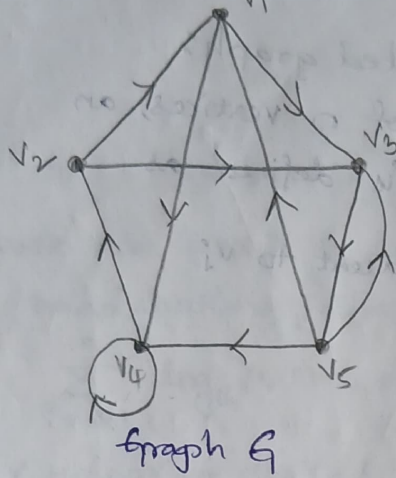 V2
V3
V4
V5
Graph G